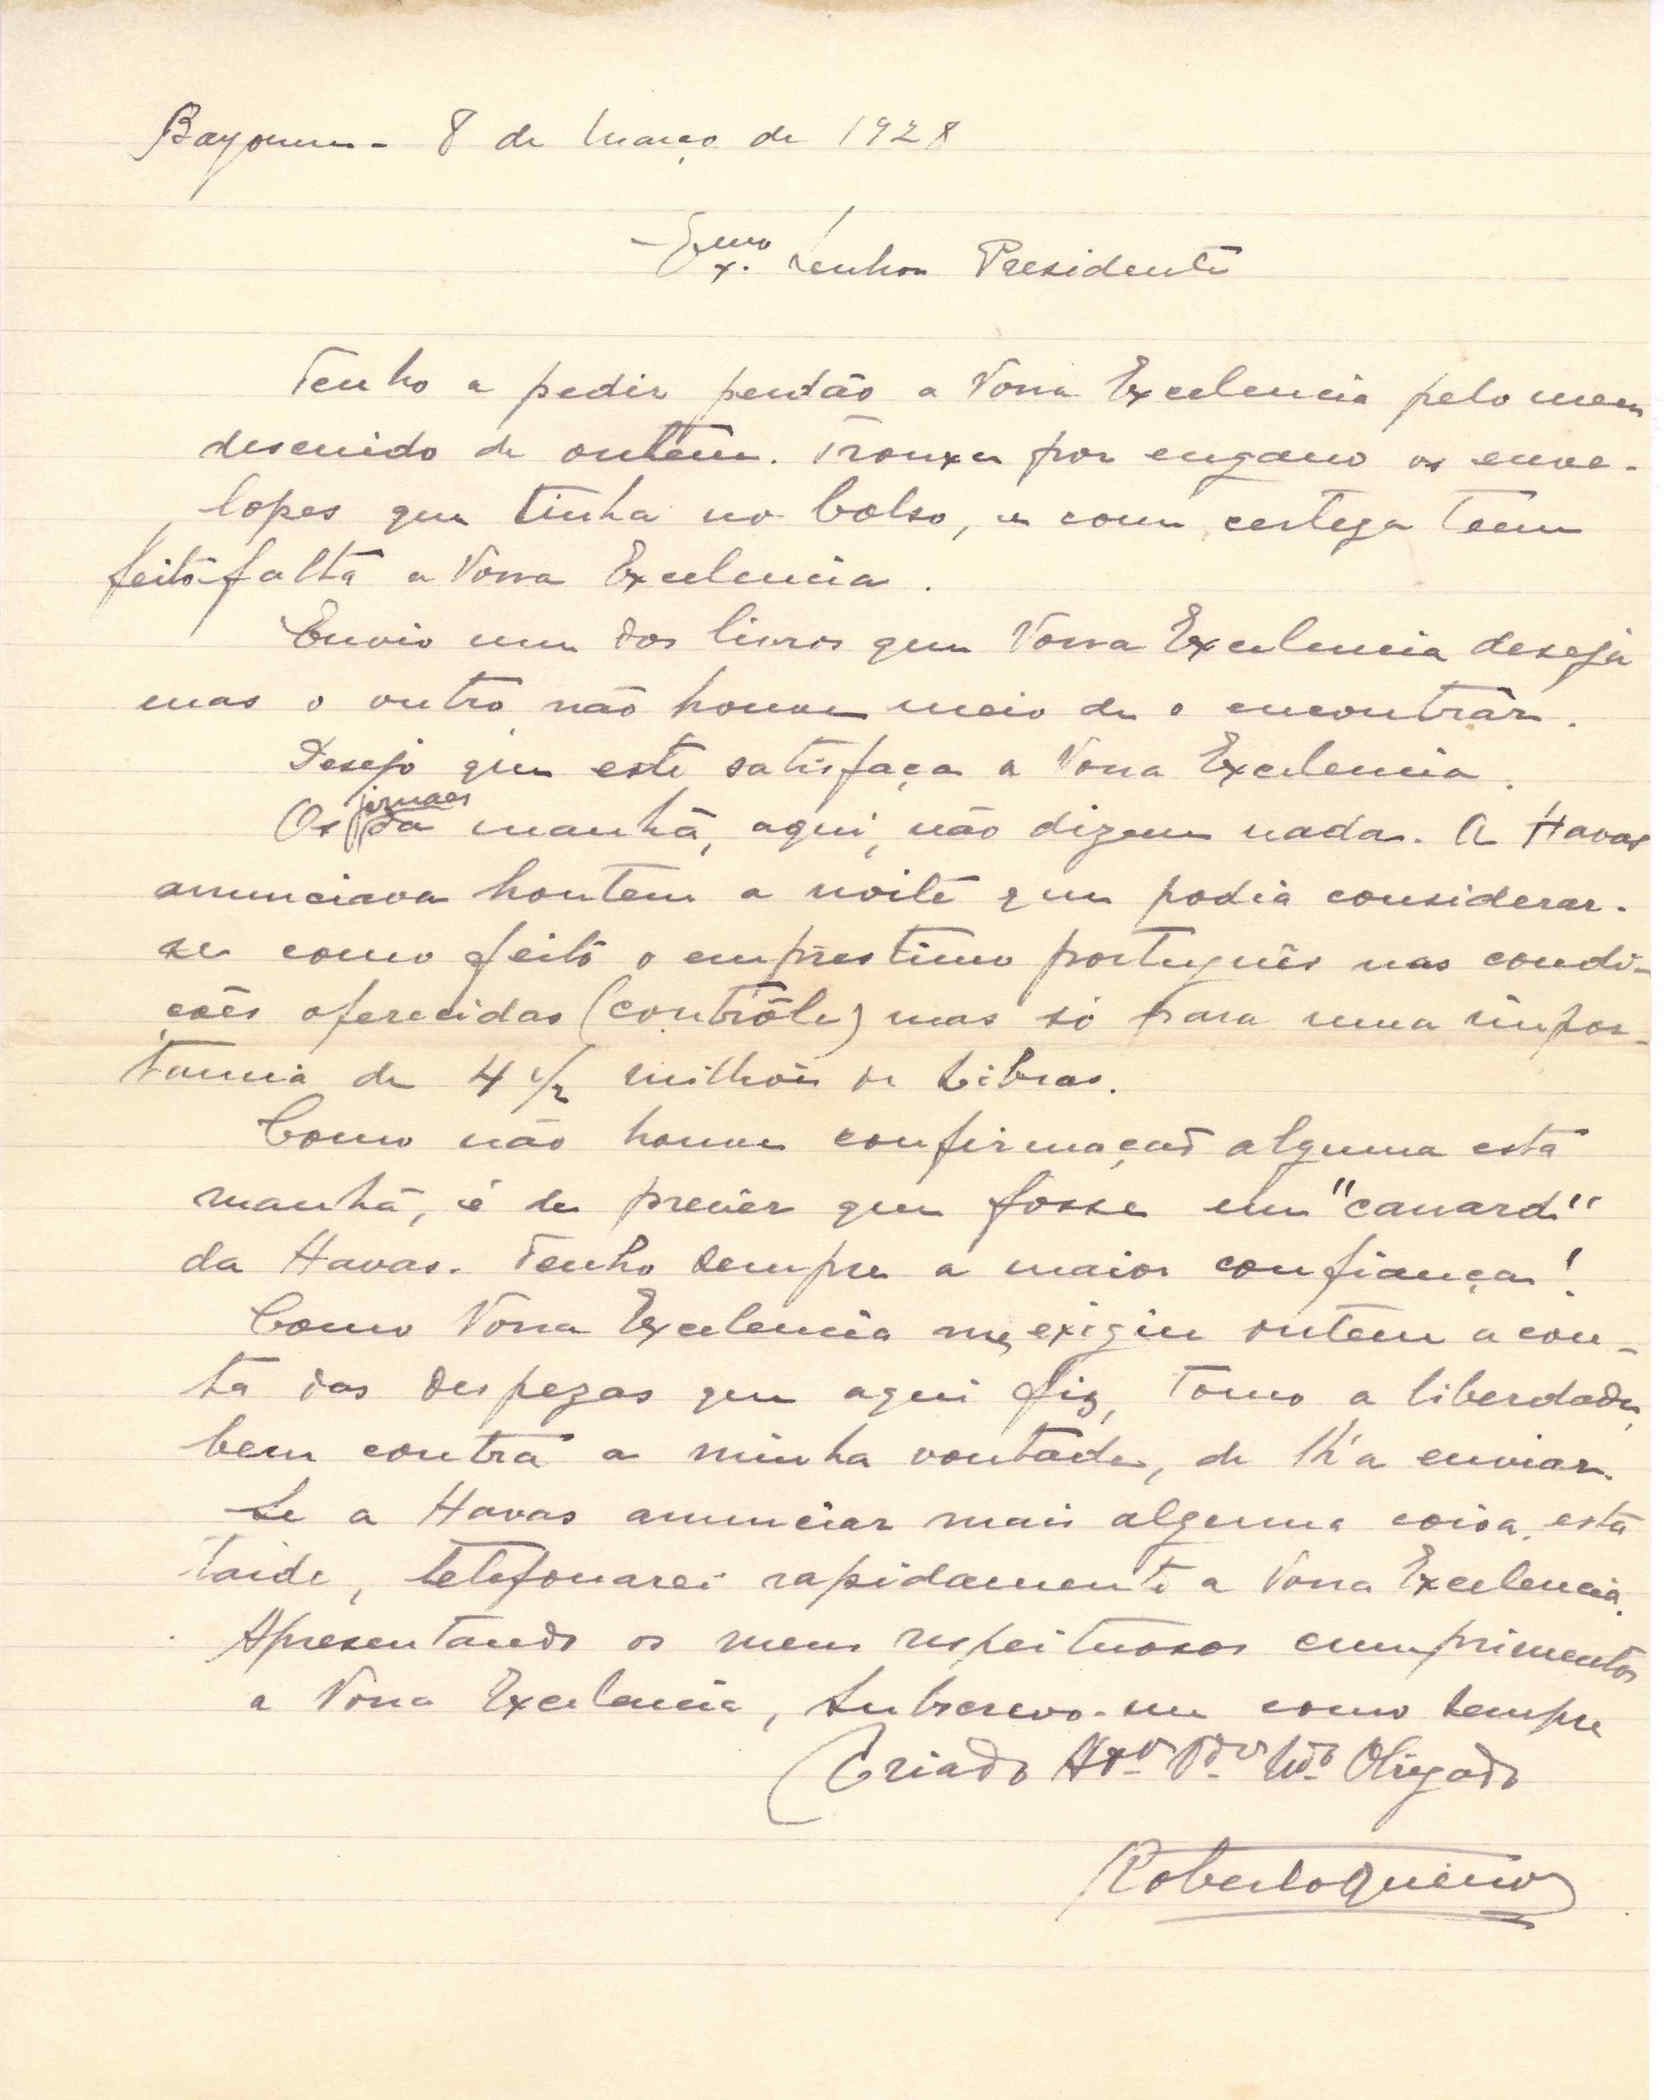 Bayonne - 8 de Março de 1928
Exmo. Senhor Presidente
Tenho a pedir perdão a Vossa Excelencia pelo meu
descuido de ontem. Trouxe por engano os enve-
lopes que tinha no bolso, e com certeza teem
feito falta a Vossa Excelencia.
Envio um dos livros que Vossa Excelencia deseja
mas o outro não houve meio de o encontrar.
Desejo que este satisfaça a Vossa Excelencia.
Os jornaes da manhã, aqui, não dizem nada. A Havas
anunciava hontem a noite que podia considerar-
se como feito o emprestimo português nas condi-
ções oferecidas (contrôle) mas só para uma impor-
tancia de 4 1/2 milhões de Libras.
Como não houve confirmação alguma esta
manhã, é de prevêr que fosse um "canard"
da Havas. Tenho sempre a maior confiança!
Como Vossa Excelencia me exigiu ontem a con-
ta das despezas que aqui fiz, tomo a liberdade,
bem contra a minha vontade, de lh'a enviar.
Se a Havas anunciar mais alguma coisa esta
tarde, telefonarei rapidamente a Vossa Excelencia.
Apresentando os meus respeitosos cumprimentos
a Vossa Excelencia, subscrevo-me como sempre
Criado Atº Vdor Mto Obrigado
Roberto Queiroz